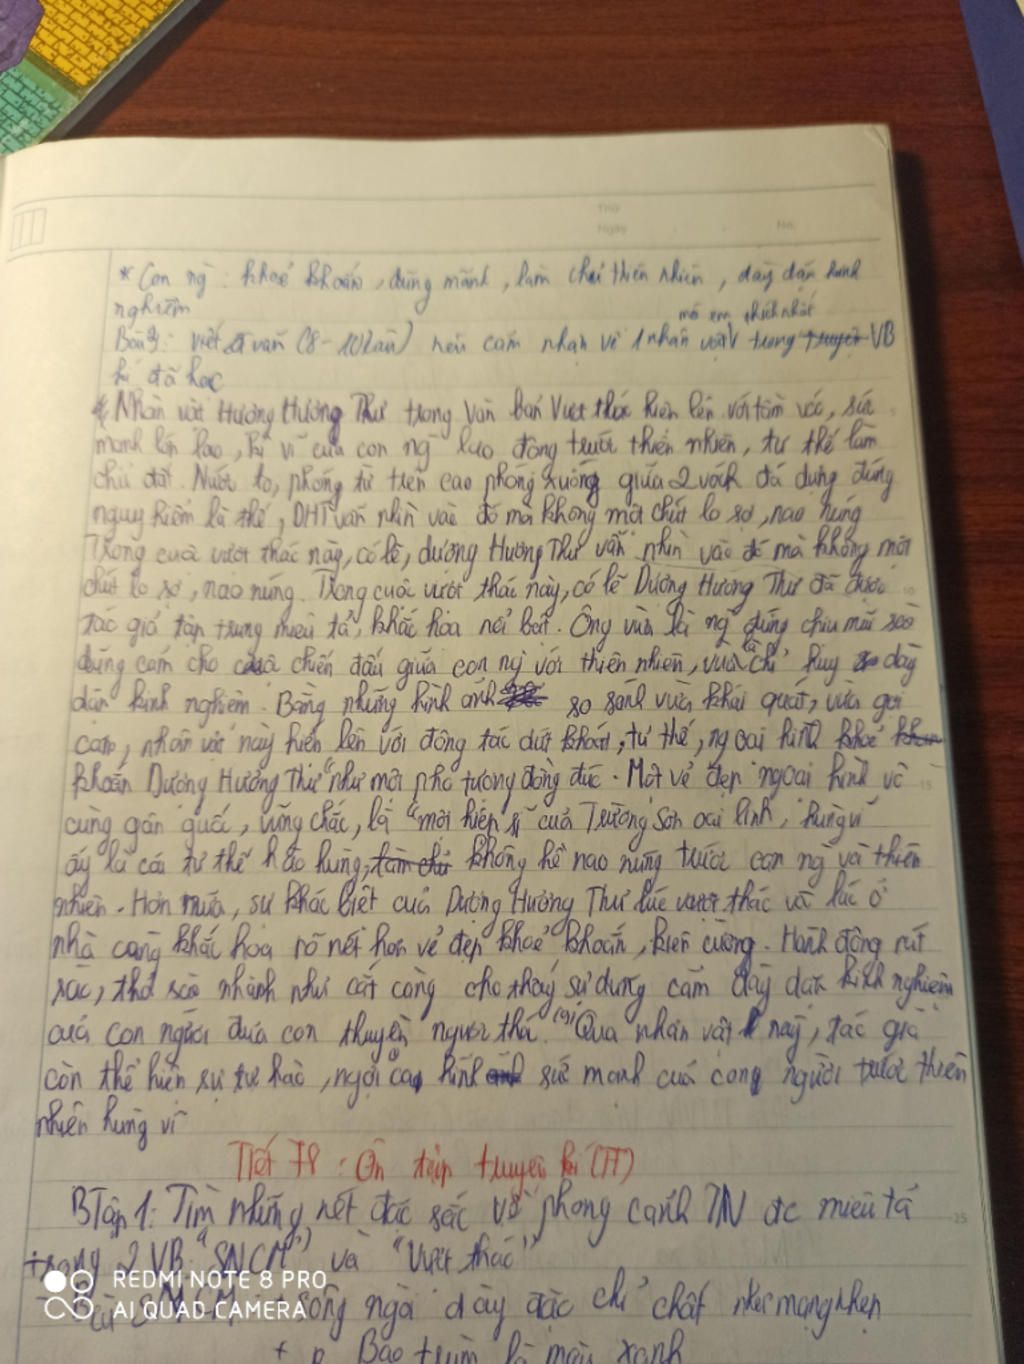 Thứ
Ngày
No.
* Con ng : khoẻ khoắn, dũng mãnh, làm chủ thiên nhiên, dày dặn kinh
nghiệm
mà em thích nhất
Bài 3: Viết đ văn (8-10 câu) nêu cảm nhận về 1 nhân vật trong truyện VB
kí đã học
Nhân vật Hương Hương Thư trong văn bản Vượt thác hiện lên với tầm vóc, sức
mạnh lớn lao, kì vĩ của con ng lao động trước thiên nhiên, tư thế làm
chủ đất. Nước to, phóng từ trên cao phóng xuống giữa 2 vách đá dựng đứng
nguy hiểm là thế, DHT vẫn nhìn vào đó mà không một chút lo sợ, nao núng
Trong cuộc vượt thác này, có lẽ, dương Hương Thư vẫn nhìn vào đó mà không một
chút lo sợ, nao núng. Trong cuộc vượt thác này, có lẽ Dương Hương Thư đã được
tác giả tập trung miêu tả, khắc họa nổi bật. Ông vừa là ng đứng chịu mũi sào
dũng cảm cho cuộc chiến đấu giữa con ng với thiên nhiên, vừa là chỉ huy dày
dặn kinh nghiệm. Bằng những hình ảnh so sánh vừa khái quát, vừa gợi
cảm, nhân vật này hiện lên với động tác dứt khoát, tư thế, ngoại hình khoẻ
khoắn Dương Hương Thư "như một pho tượng đồng đúc. Một vẻ đẹp ngoại hình vô
cùng gân guốc, vững chắc, là "một hiệp sĩ của Trường Sơn oai linh, hùng vĩ
ấy là cái tư thế hào hùng, làm chủ không hề nao núng trước con ng và thiên
nhiên. Hơn nữa, sự khác biệt của Dượng Hương Thư lúc vượt thác và lúc ở
nhà càng khắc họa rõ nét hơn vẻ đẹp khoẻ khoắn, kiên cường. Hành động rút
sào, thả sào nhanh như cắt càng cho thấy sự dũng cảm dày dặn kinh nghiệm
của con người đưa con thuyền ngược thá. (9) Qua nhân vật này, tác giả
còn thể hiện sự tự hào, ngợi ca hình ảnh sức mạnh của con người trước thiên
nhiên hùng vĩ
Tiết 78 : Ôn tập truyện kí (TT)
BTập 1: Tìm những nét đặc sắc về phong cảnh TN đc miêu tả
trong 2 VB "SNCM") và "Vượt thác"
SNCM : + sông ngòi dày đặc chi chất như mạng nhện
+ Bao trùm là màu xanh
REDMI NOTE 8 PRO
AI QUAD CAMERA